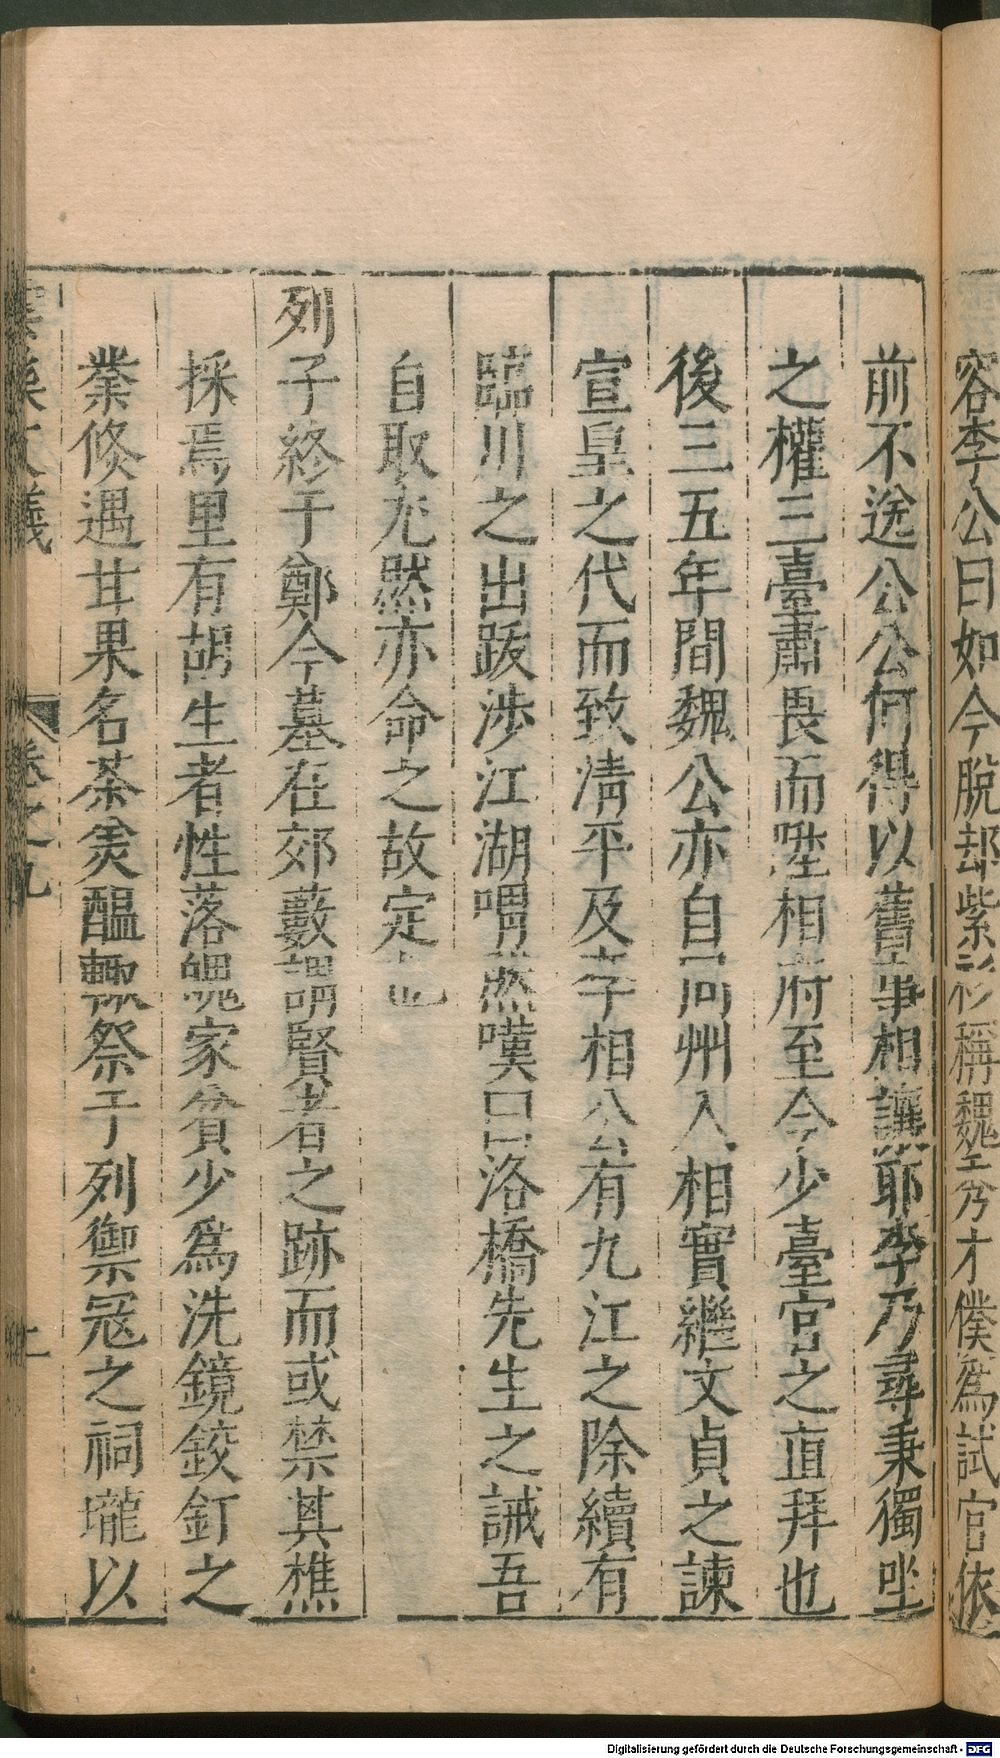 容李公曰如今脫却紫衫稱魏秀才僕爲試官依
前不送公公何得以舊事相讓耶李乃尋秉獨坐
之權三臺肅畏而陞相府至今少臺官之直拜也
後三五年間魏公亦自同州入相實繼文貞之諫
宣皇之代而致清平及李相公有九江之除續有
臨川之出跋涉江湖喟然嘆曰洛橋先生之誡吾
自取尤然亦命之故定也
列子終于鄭今墓在郊藪謂賢者之跡而或禁其樵
採焉里有胡生者性落魄家貧少爲洗鏡鉸釘之
業倏遇甘果名茶美醞輙祭于列禦寇之祠壠以
友議
卷之九
Digitalisierung gefördert durch die Deutsche Forschungsgemeinschaft - DFG